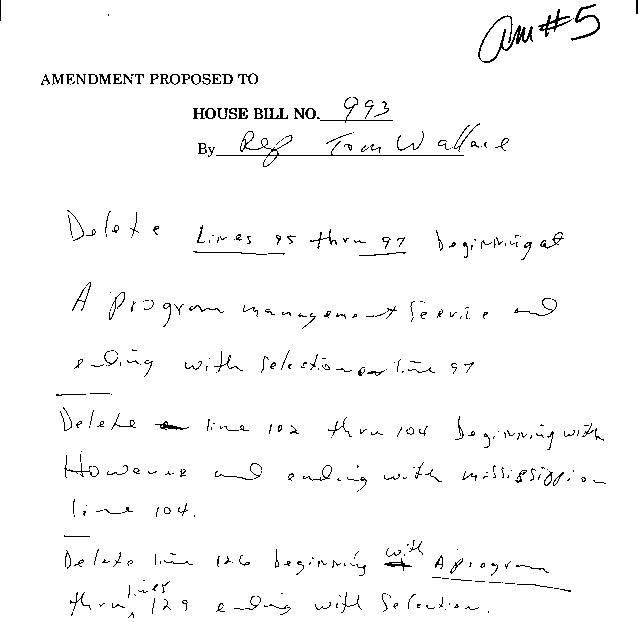 Am #5
AMENDMENT PROPOSED TO
HOUSE BILL NO. 993
By Rep Tom Wallace
Delete Lines 95 thru 97 beginning at
A program management Service and
ending with selection on line 97
Delete line 102 thru 104 beginning with
However and ending with mississippi on
line 104.
Delete line 126 beginning with A program
thru lines 129 ending with Selection.